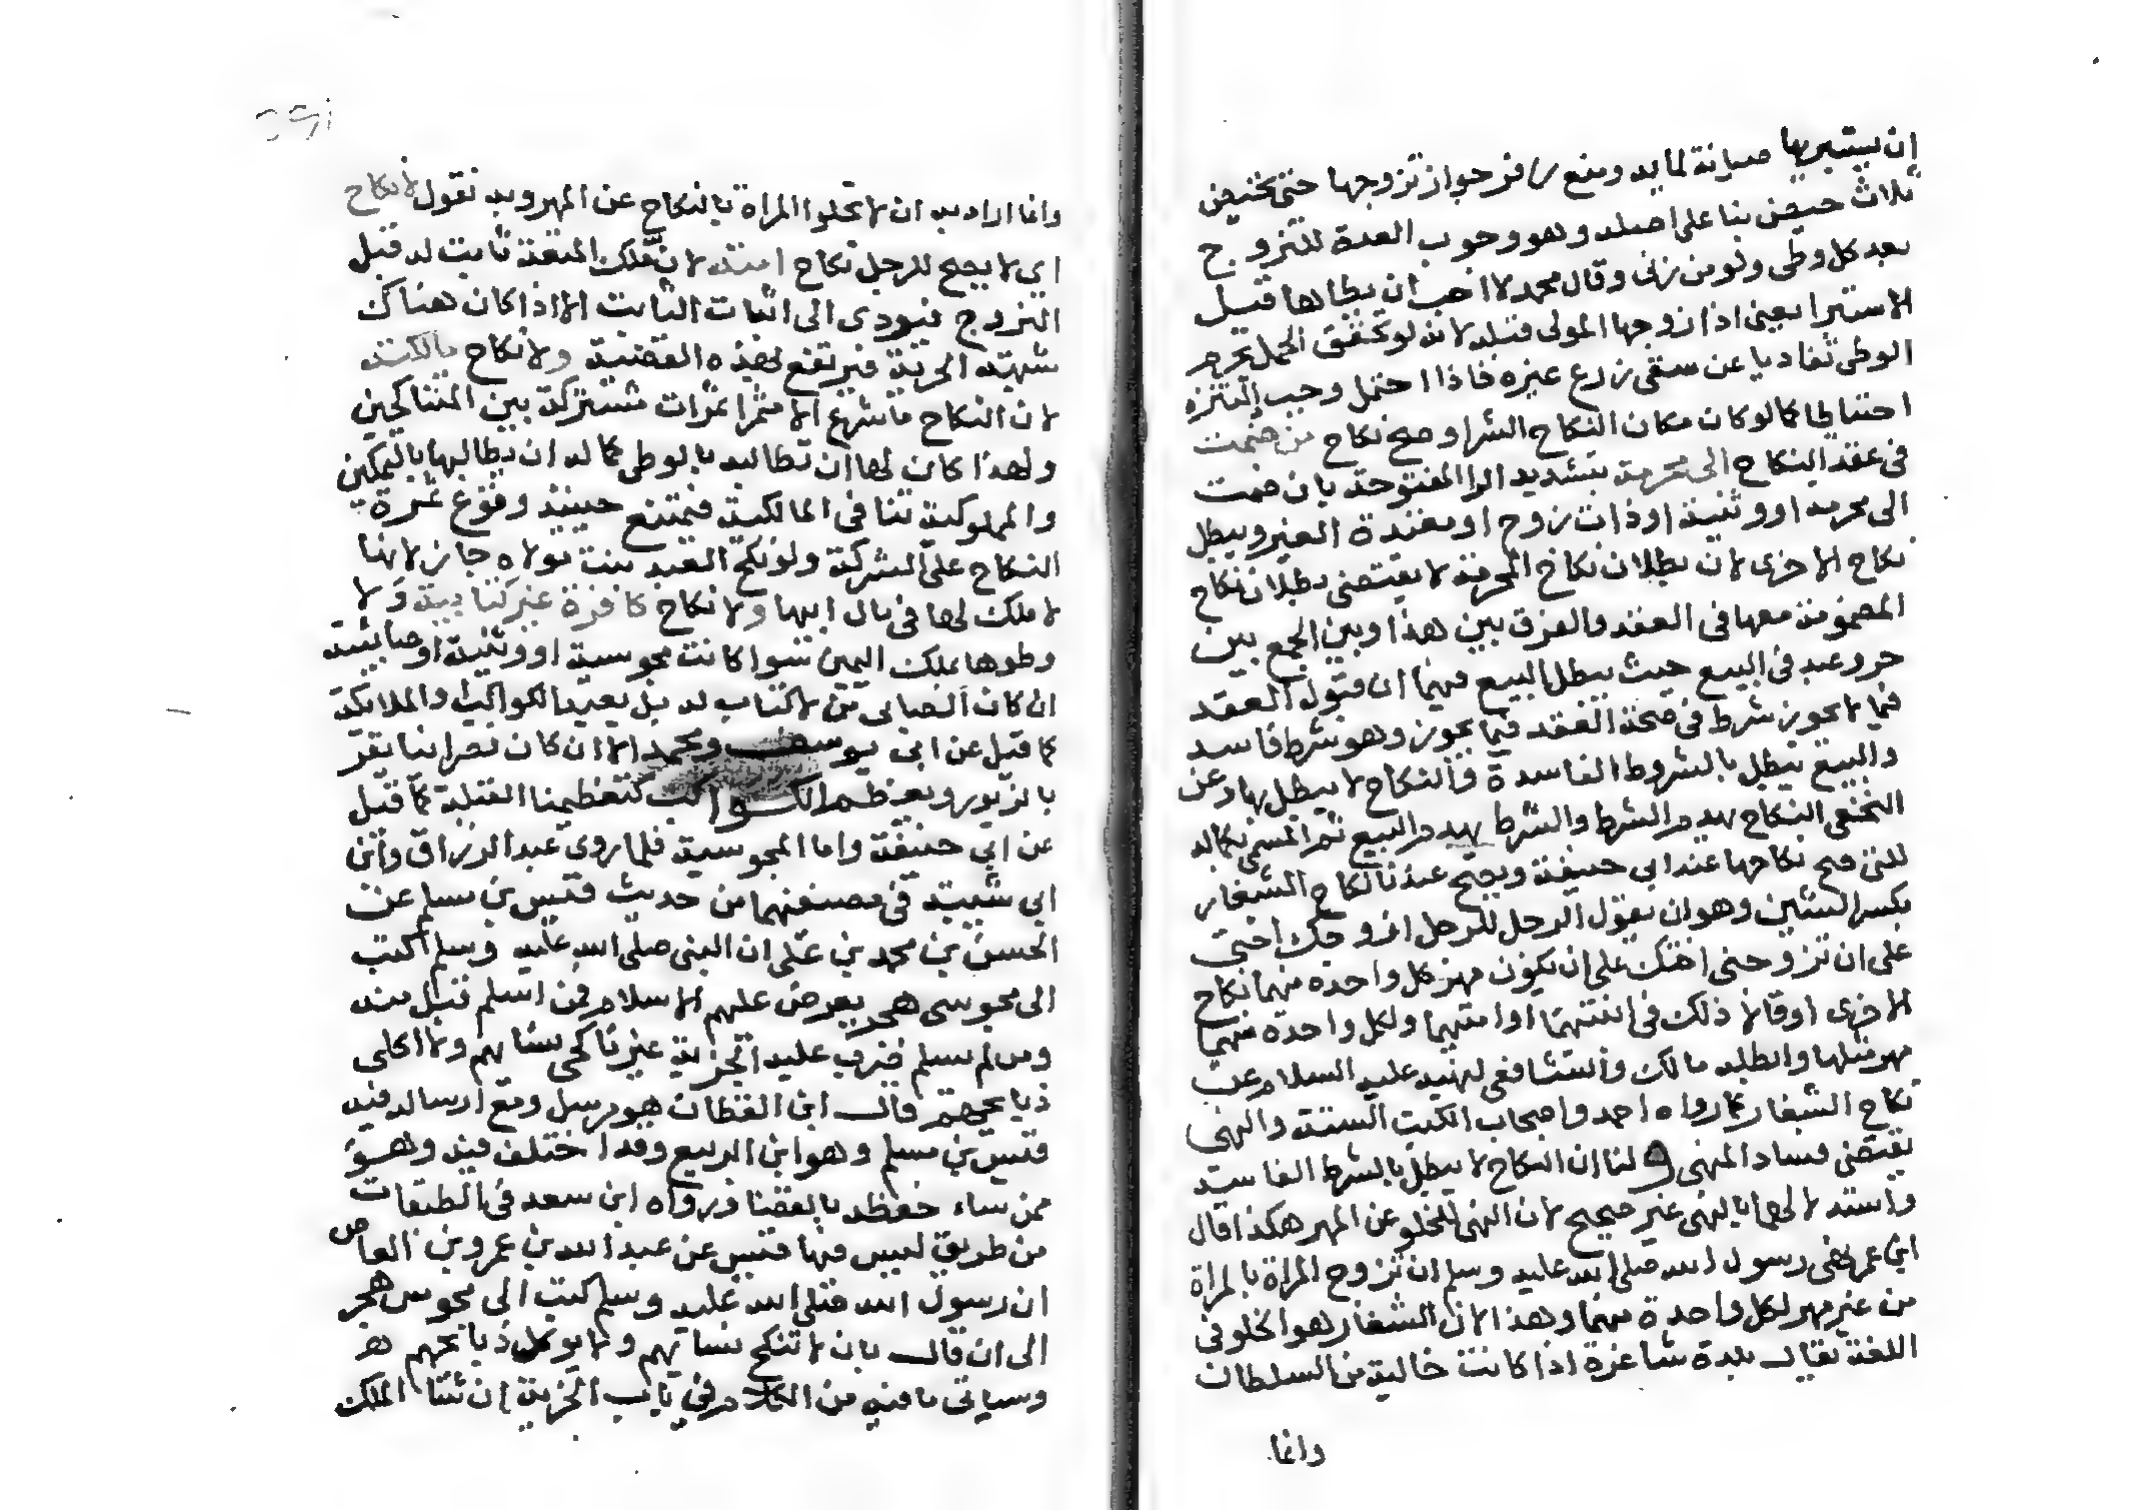 إن يستبريها صيانة لمايه ومنع زفر جواز تزوجها حتى تحيض
ثلاث حيض بنا على اصله وهو وجوب العدة للتزوج
بعد كل وطى ولو من زنى وقال محمد لا احب ان يطاها قبل
الاستبرا يعنى اذا زوجها المولى قبله لانه لو تحقق الحمل يحرم
الوطى تفاديا عن سقى زرع غيره فاذا احتمل وجب التنزه
احتياطا كما لو كان مكان النكاح الشرا وصح نكاح من ضمت
فى عقد النكاح الى محرمة بتشديد الرا المفتوحة بان ضمت
الى محرمه او وثنية او ذات زوج او معتدة الغير ويبطل
نكاح الاخرى لان بطلان نكاح المحرمة لا يقتضى بطلان نكاح
المضمومة معها فى العقد والفرق بين هذا وبين الجمع بين
حر وعبد فى البيع حيث يبطل البيع فيهما ان قبول العقد
فيما لا يجوز شرط فى صحة العقد فيما يجوز وهو شرط فاسد
والبيع يبطل بالشروط الفاسدة والنكاح لا يبطل بها وعن
النخعى النكاح يهدم الشرط والشرط يهدم البيع ثم المسمى بكماله
للتى صح نكاحها عند ابى حنيفة ويصح عندنا نكاح الشغار
بكسر الشين وهو ان يقول الرجل للرجل ازوجك اختى
على ان تزوجنى اختك على ان يكون مهر كل واحدة منهما نكاح
الاخرى او قالا ذلك فى ابنتيهما او امتيهما ولكل واحدة منهما
مهر مثلها وابطله مالك والشافعى لنهيه عليه السلام عن
نكاح الشغار كما رواه احمد واصحاب الكتب الستة والنهى
يقتضى فساد المنهى ولنا ان النكاح لا يبطل بالشرط الفاسد
واستدلالهما بالنهى غير صحيح لان النهى للخلو عن المهر هكذا قال
ابن عمر نهى رسول الله صلى الله عليه وسلم ان تزوج المراة بالمراة
من غير مهر لكل واحدة منهما وهذا لان الشغار هو الخلو فى
اللغة يقال بلدة شاغرة اذا كانت خالية من السلطان
وانما
وانما اراد به ان لا تخلوا المراة بالنكاح عن المهر وبه نقول لا نكاح
اى لا يصح للرجل نكاح امته لان ملك المتعة ثابت له قبل
التزوج فيودى الى اثبات الثابت الا اذا كان هناك
شبهة الحرية فيرتفع بهذه القضية ولا نكاح مالكته
لان النكاح ما شرع الا مثمرا ثمرات مشتركة بين المتناكحين
ولهذا كان لها ان تطالبه بالوطى كما له ان يطالبها بالتمكين
والمملوكية تنافى المالكية فيمتنع حينئذ وقوع ثمرة
النكاح على الشركة ولو نكح العبد بنت مولاه جاز لانها
لا ملك لها فى مال ابيها ولا نكاح كافرة غير كتابية ولا
وطوها بملك اليمين سوا كانت مجوسية او وثنية او صابئية
ان كان الصابى من لا كتاب له بل يعبد الكواكب والملائكة
كما قيل عن ابى يوسف ومحمد الا ان كان نصرانيا يقر
بالزبور ويعظم الكواكب كتعظيمنا القبلة كما قيل
عن ابى حنيفة واما المجوسية فلما روى عبد الرزاق وابن
ابى شيبة فى مصنفيهما من حديث قيس بن مسلم عن
الحسن بن محمد بن على ان النبى صلى الله عليه وسلم كتب
الى مجوسى هجر يعرض عليهم الاسلام فمن اسلم قبل منه
ومن لم يسلم ضرب عليه الجزية غير ناكحى نسائهم ولا اكلى
ذبائحهم قال ابن القطان هو مرسل ومع ارساله فيه
قيس بن مسلم وهو ابن الربيع وقد اختلف فيه وهو
ممن ساء حفظه بالقضا ورواه ابن سعد فى الطبقات
من طريق ليس فيها قيس عن عبد الله بن عمرو بن العاص
ان رسول الله صلى الله عليه وسلم كتب الى مجوس هجر
الى ان قال بان لا تنكح نسائهم ولا يوكل ذبائحهم
وسياتى ما فيه من الكلام فى باب الجزية إن شا الملك